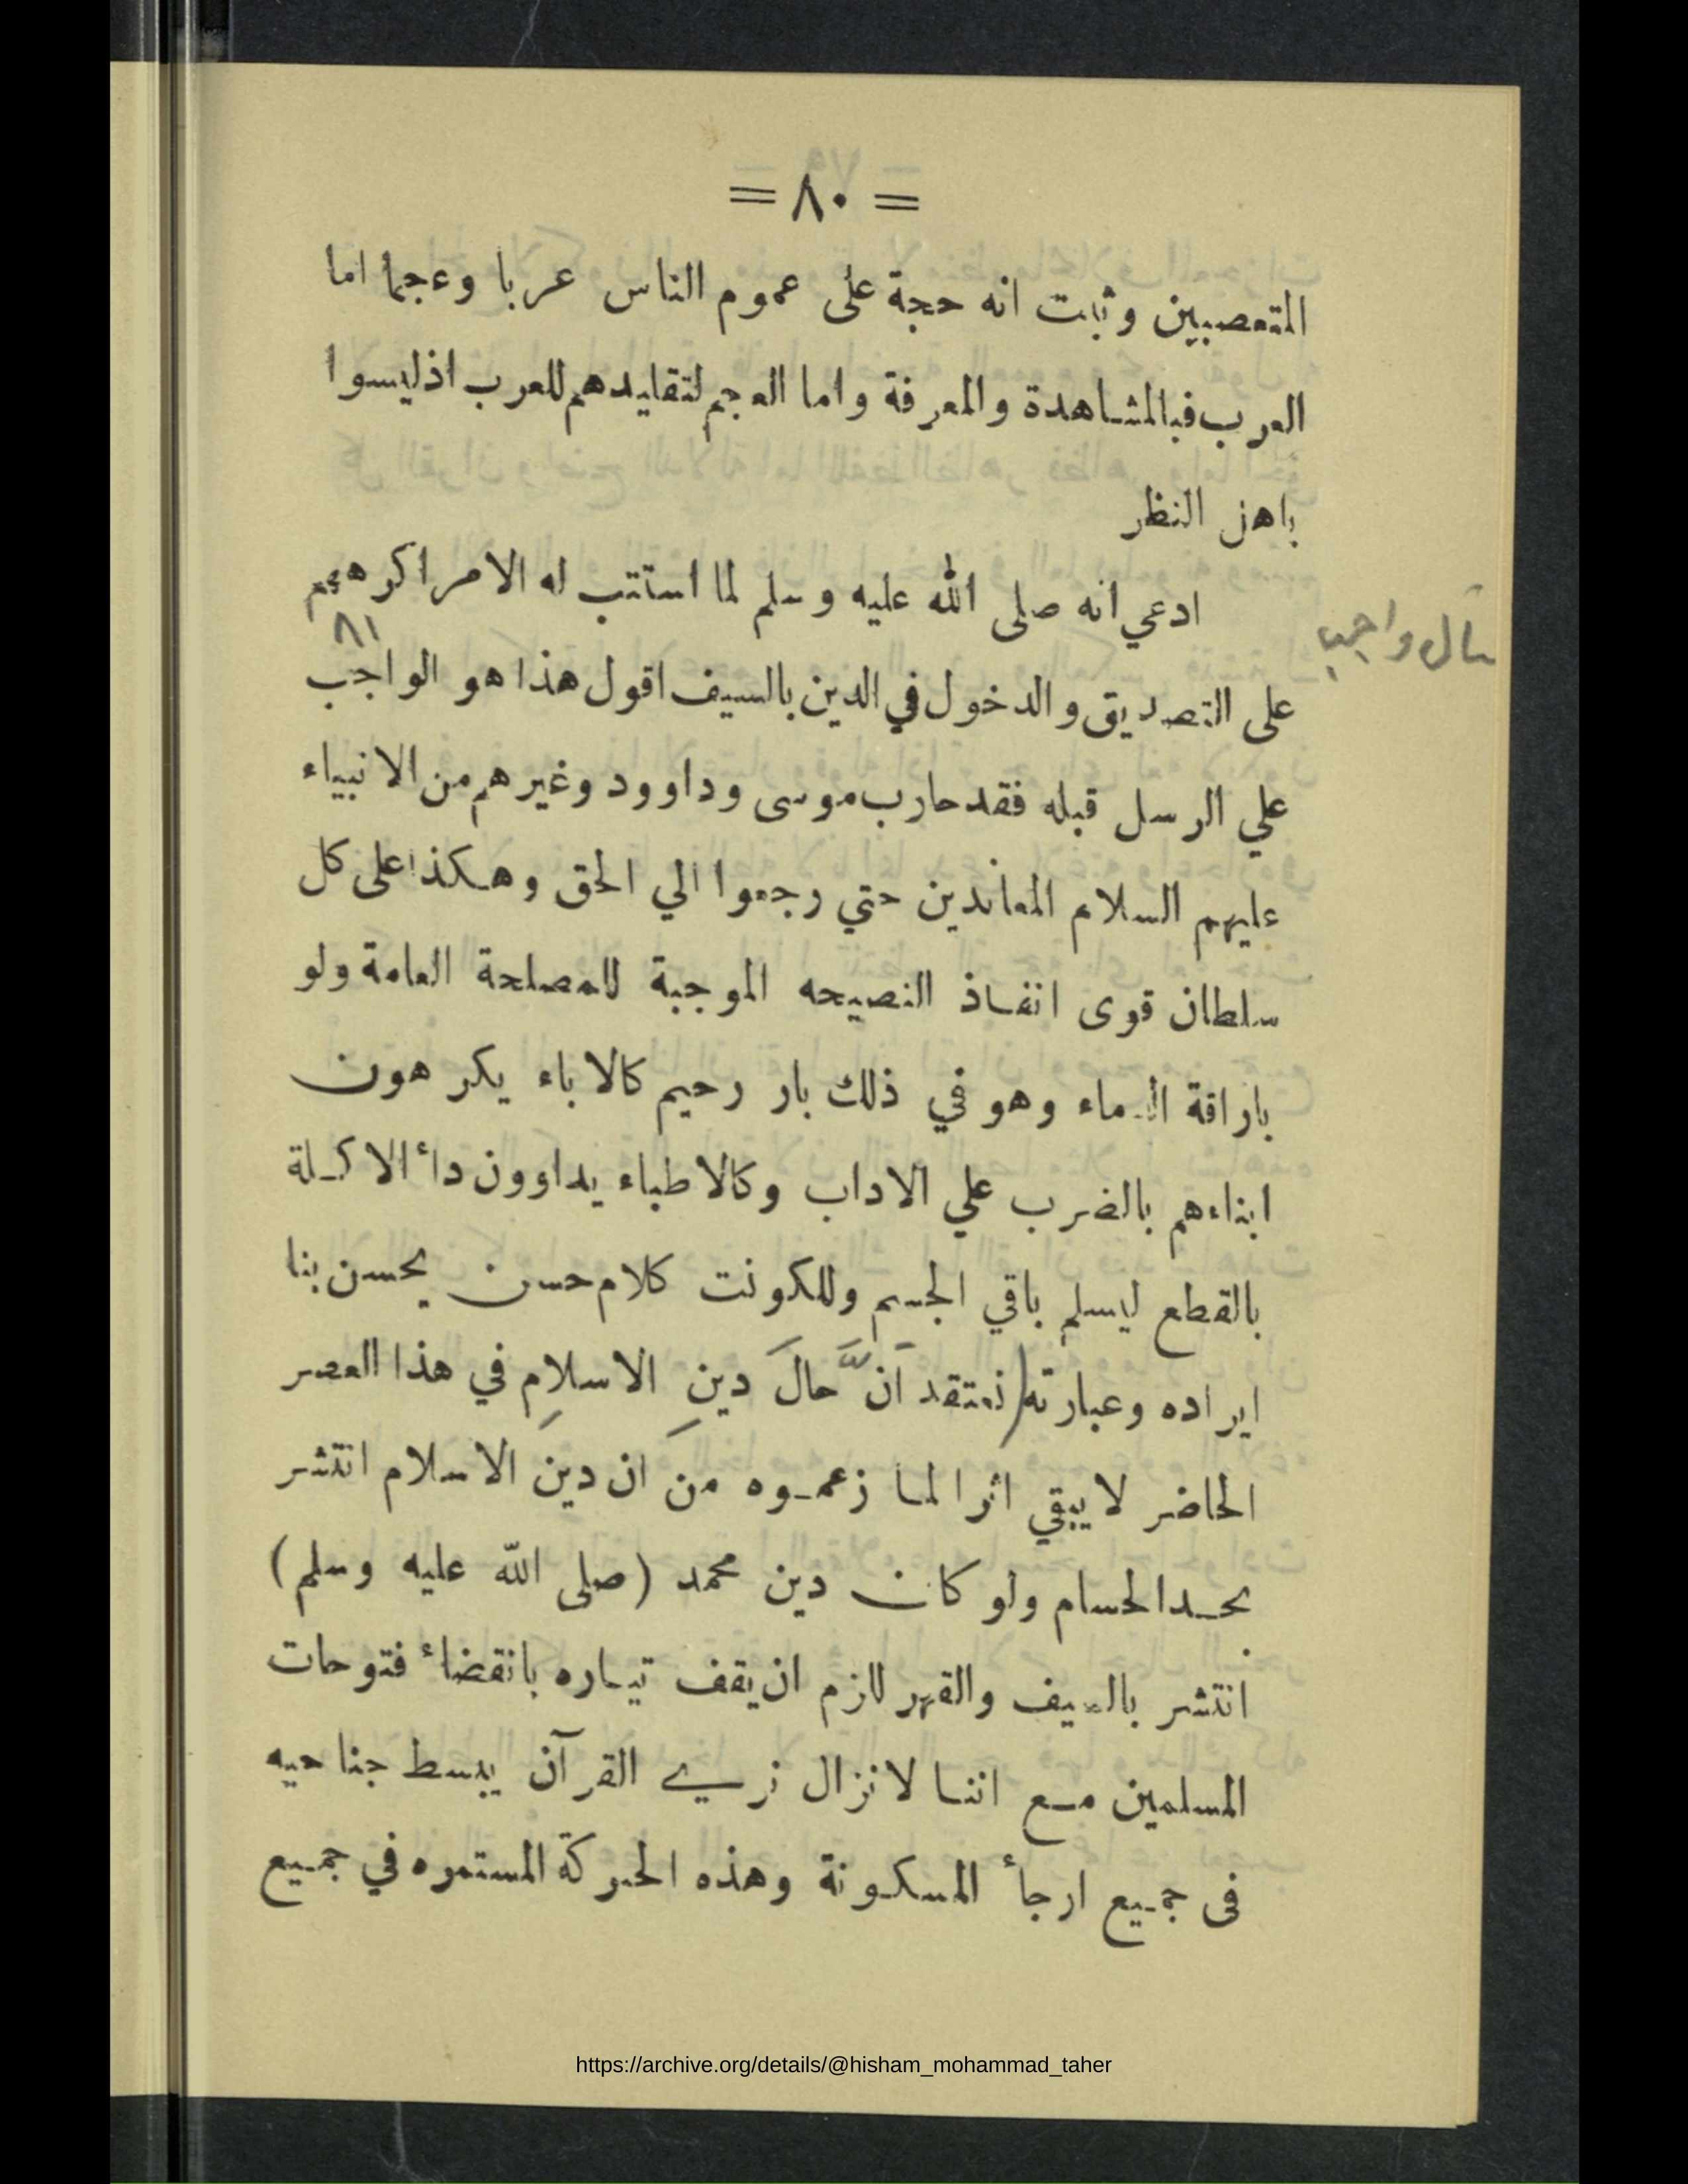 = ٨٠ =
المتعصبين وثبت انه حجة على عموم الناس عربا وعجما اما
العرب فبالمشاهدة والمعرفة واما العجم لتقليدهم للعرب اذليسوا
باهل النظر
ادعي انه صلى الله عليه وسلم لما استتب له الامر اكرههم
٨١
على التصديق والدخول في الدين بالسيف اقول هذا هو الواجب
علي الرسل قبله فقد حارب موسى وداوود وغيرهم من الانبياء
عليهم السلام المعاندين حتي رجعوا الي الحق وهكذا على كل
سلطان قوى انفاذ النصيحه الموجبة للمصلحة العامة ولو
باراقة الدماء وهو في ذلك بار رحيم كالاباء يكرهون
ابناءهم بالضرب علي الاداب وكالاطباء يداوون دأ الاكلة
بالقطع ليسلم باقي الجسم وللكونت كلام حسن يحسن بنا
ايراده وعبارته (نعتقد ان حال دين الاسلام في هذا العصر
الحاضر لا يبقي اثرا لما زعموه من ان دين الاسلام انتشر
بحد الحسام ولو كان دين محمد (صلى الله عليه وسلم)
انتشر بالسيف والقهر للزم ان يقف تياره بانقضاء فتوحات
المسلمين مع اننا لانزال نرى القرآن يبسط جناحيه
فى جميع ارجأ المسكونة وهذه الحركة المستمره في جميع
https://archive.org/details/@hisham_mohammad_taher